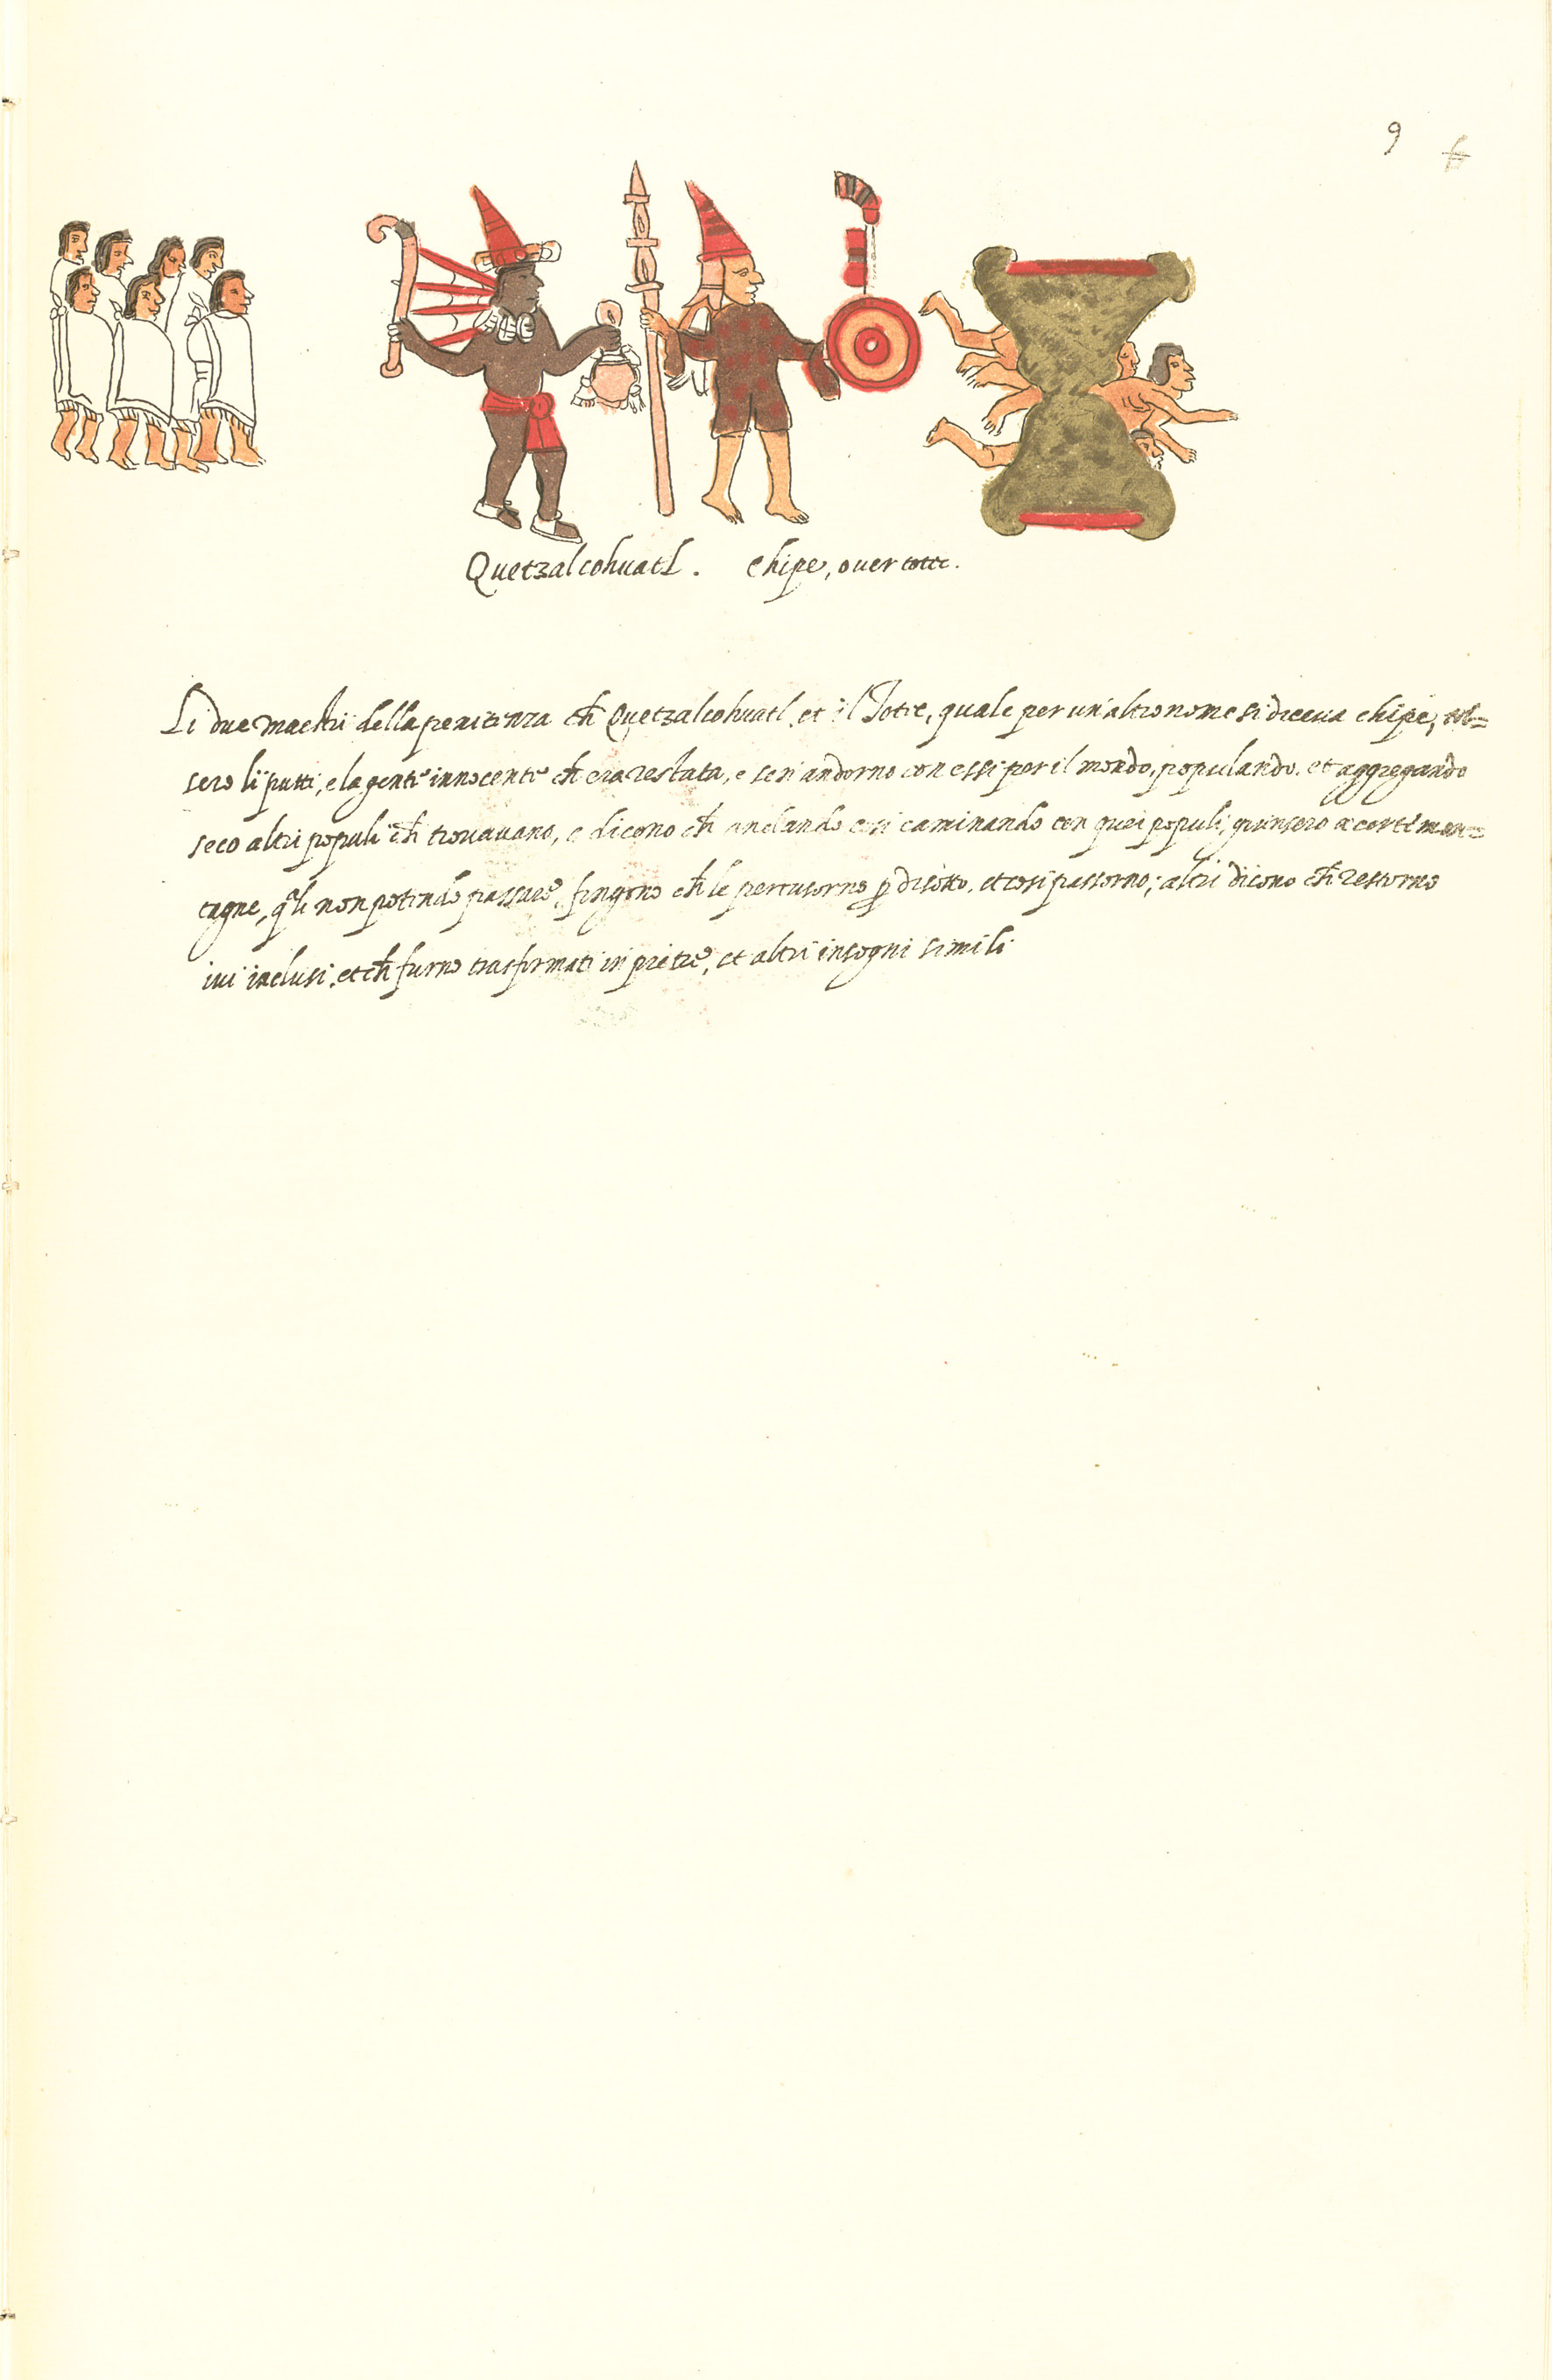 9
Quetzalcohuatl. Chipe, over totec.
Li due maestri della penitenza ch̃ Quetzalcohuatl, et il Totec, quale per un'altro nome si diceva chipe, tol=
sero li putti, e la gente innocente ch̃ era restata, e se n'andorno con essi per il mondo, populando. et aggregando
seco altri populi ch̃ trovavano, e dicono ch̃ andando cosi caminando con quei populi, giunsero a certe mon=
tagne, q̃li non potendo passare, fingono ch̃ le pertusorno p̱ disotto, et cosi passorno; altri dicono ch̃ restorno
ivi inclusi, et ch̃ furno trasformati in pietre, et altri insogni simili